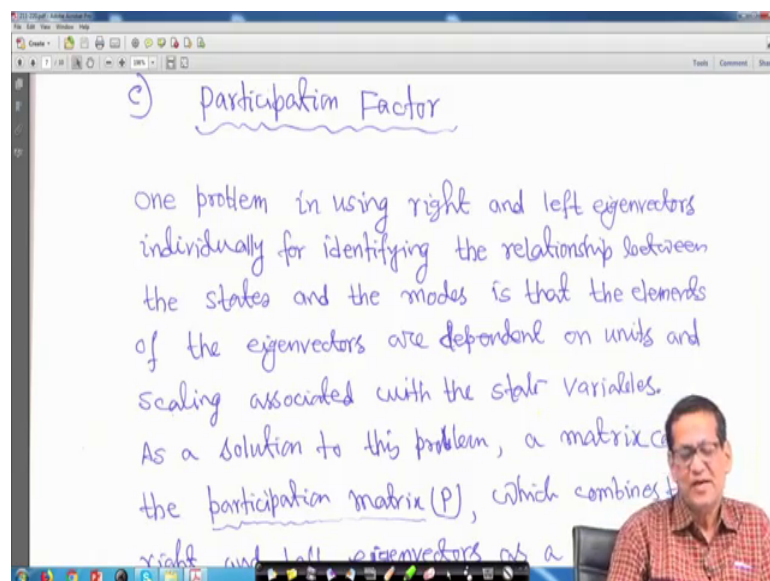 213-220.pdf - Adobe Acrobat Pro
File Edit View Window Help
Create
7
Tools Comment
c) Participation Factor
One problem in using right and left eigenvectors
individually for identifying the relationship between
the states and the modes is that the elements
of the eigenvectors are dependent on units and
scaling associated with the state variables.
As a solution to this problem, a matrix
the participation matrix (P), which combines
right and left eigenvectors as a